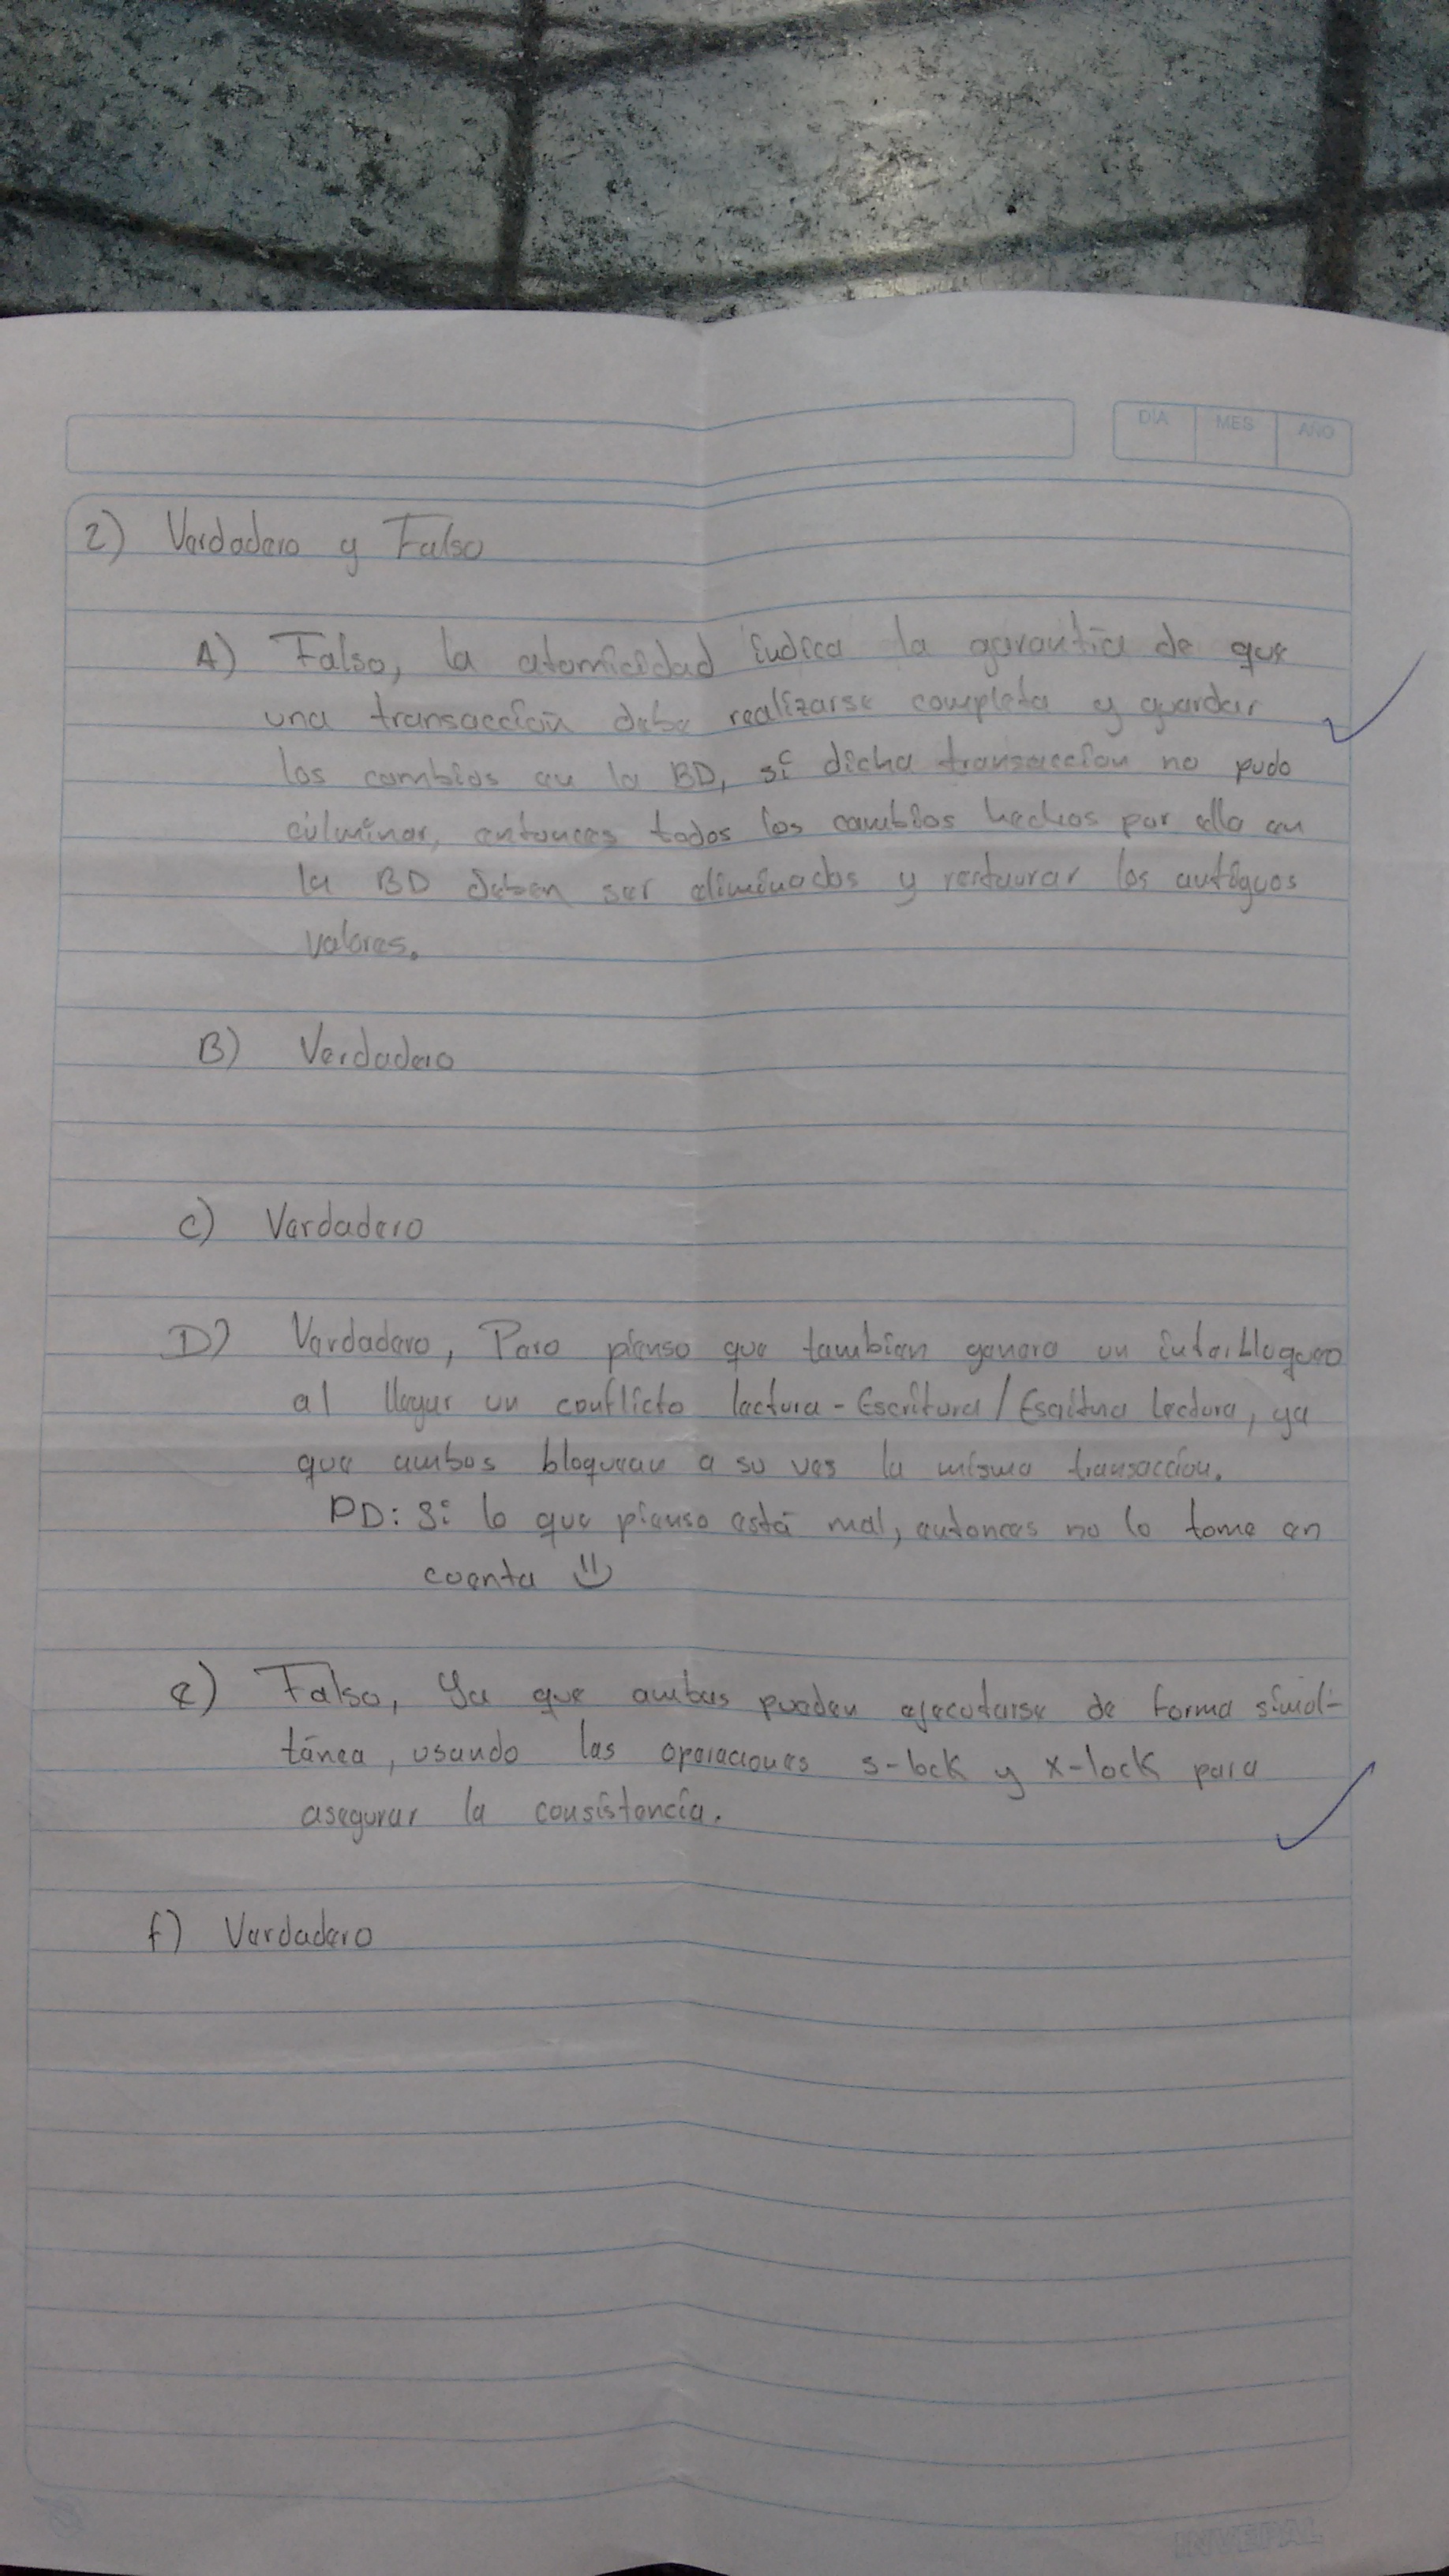 DÍA MES AÑO
2) Verdadero y Falso
A) Falso, la atomicidad indica la garantía de que
una transacción debe realizarse completa y guardar
los cambios en la BD, si dicha transaccion no pudo
culminar, entonces todos los cambios hechos por ella en
la BD deben ser eliminados y restaurar los antiguos
valores.
B) Verdadero
C) Verdadero
D) Verdadero, Pero pienso que tambien genera un interbloqueo
al llegar un conflicto lectura - Escritura / Escritura lectura, ya
que ambos bloquean a su ves la misma transaccion.
PD: Si lo que pienso está mal, entonces no lo tome en
cuenta
e) Falso, Ya que ambas pueden ejecutarse de forma simul-
tánea, usando las operaciones s-lock y x-lock para
asegurar la consistencia.
f) Verdadero
INVEPAL